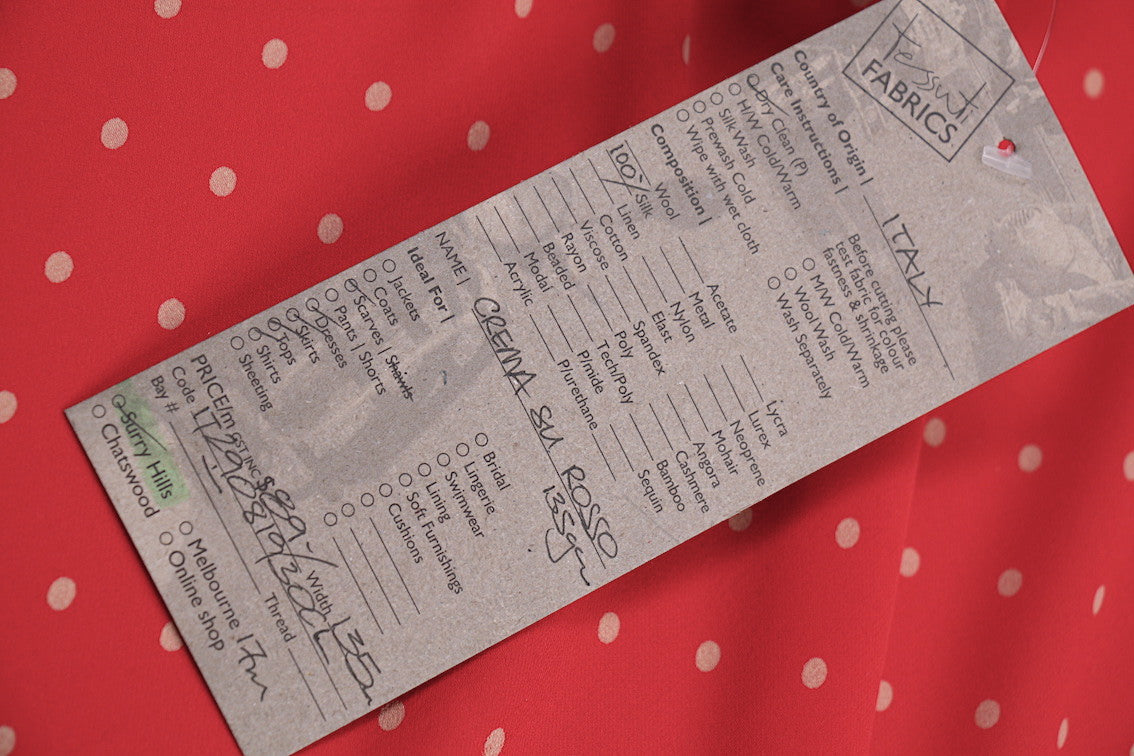 tessuti
FABRICS
Country of Origin | ITALY
Care Instructions |
Dry Clean (P)
H/W Cold/Warm
Silk Wash
Prewash Cold
Wipe with wet cloth
Before cutting please
test fabric for colour
fastness & shrinkage
M/W Cold/Warm
Wool Wash
Wash Separately
Composition |
Wool
100% Silk
Linen
Cotton
Viscose
Rayon
Beaded
Modal
Acrylic
Acetate
Metal
Nylon
Elast
Spandex
Poly
Tech/Poly
P/mide
P/urethane
Lycra
Lurex
Neoprene
Mohair
Angora
Cashmere
Bamboo
Sequin
NAME | CREMA SU ROSSO
135gm
Ideal For |
Jackets
Coats
Scarves | Shawls
Pants | Shorts
Dresses
Skirts
Tops
Shirts
Sheeting
Bridal
Lingerie
Swimwear
Lining
Soft Furnishings
Cushions
PRICE/m GST INC $89- Width 135
Code
Bay #
Thread
Surry Hills
Chatswood
Melbourne
Online shop
17m